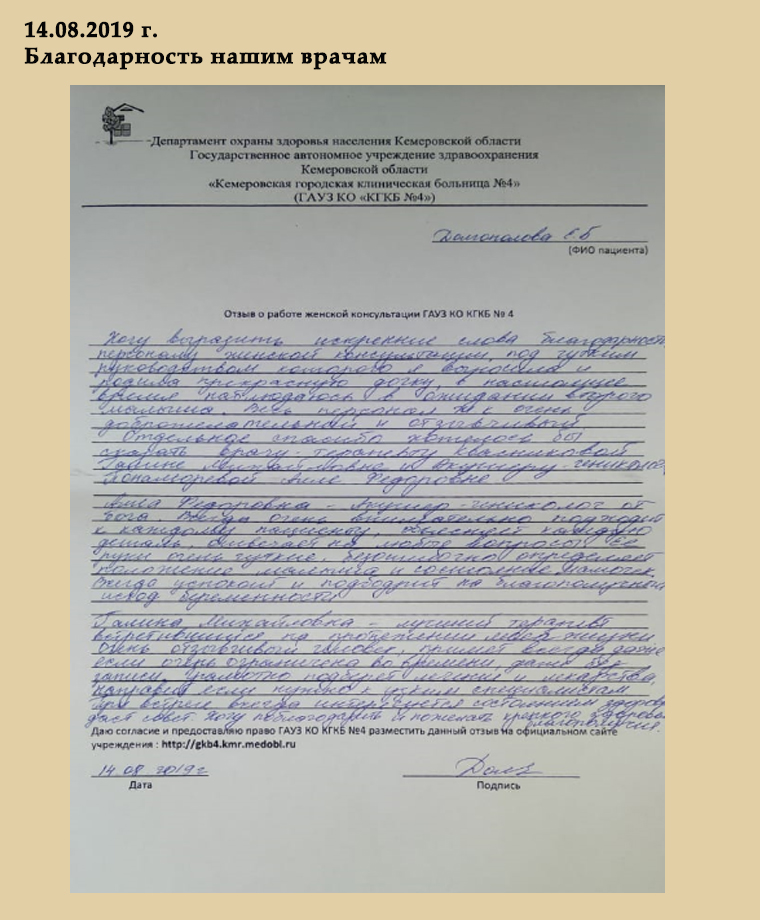 14.08.2019 г.
Благодарность нашим врачам
Департамент охраны здоровья населения Кемеровской области
Государственное автономное учреждение здравоохранения
Кемеровской области
«Кемеровская городская клиническая больница №4»
(ГАУЗ КО «КГКБ №4»)
Долгополова Е.Б
(ФИО пациента)
Отзыв о работе женской консультации ГАУЗ КО КГКБ № 4
Хочу выразить искренние слова благодарности
персоналу женской консультации, под чутким
руководством которого я выносила и
родила прекрасную дочку, в настоящее
время наблюдаюсь в ожидании второго
малыша. Весь персонал ж к очень
доброжелательный и отзывчивый.
Отдельное спасибо хотелось бы
сказать врачу-терапевту Квасниковой
Галине Михайловне и Акушеру-гинекологу
Пономаревой Алле Федоровне
Алла Федоровна - Акушер-гинеколог от
бога Всегда очень внимательно подходит
к каждому пациенту, каждую
деталь на любые вопросы. Её
руки очень чуткие безошибочно определяет
положение малыша и состояние мамочек
Всегда успокоит и подбодрит на благополучный
исход беременности
Галина Михайловна - лучший терапевт
встретившийся на протяжении моей жизни
Очень отзывчивый человек, примет всегда даже
если очень ограничена во времени, даже без
записи, грамотно подберет лечение и лекарства,
направит если нужно к узким специалистам
При встрече всегда интересуется состоянием здоровья
даст совет. Хочу поблагодарить и пожелать крепкого здоровья
благополучия.
Даю согласие и предоставляю право ГАУЗ КО КГКБ №4 разместить данный отзыв на официальном сайте
учреждения : http://gkb4.kmr.medobl.ru
14.08 2019 г
Дата
Подпись